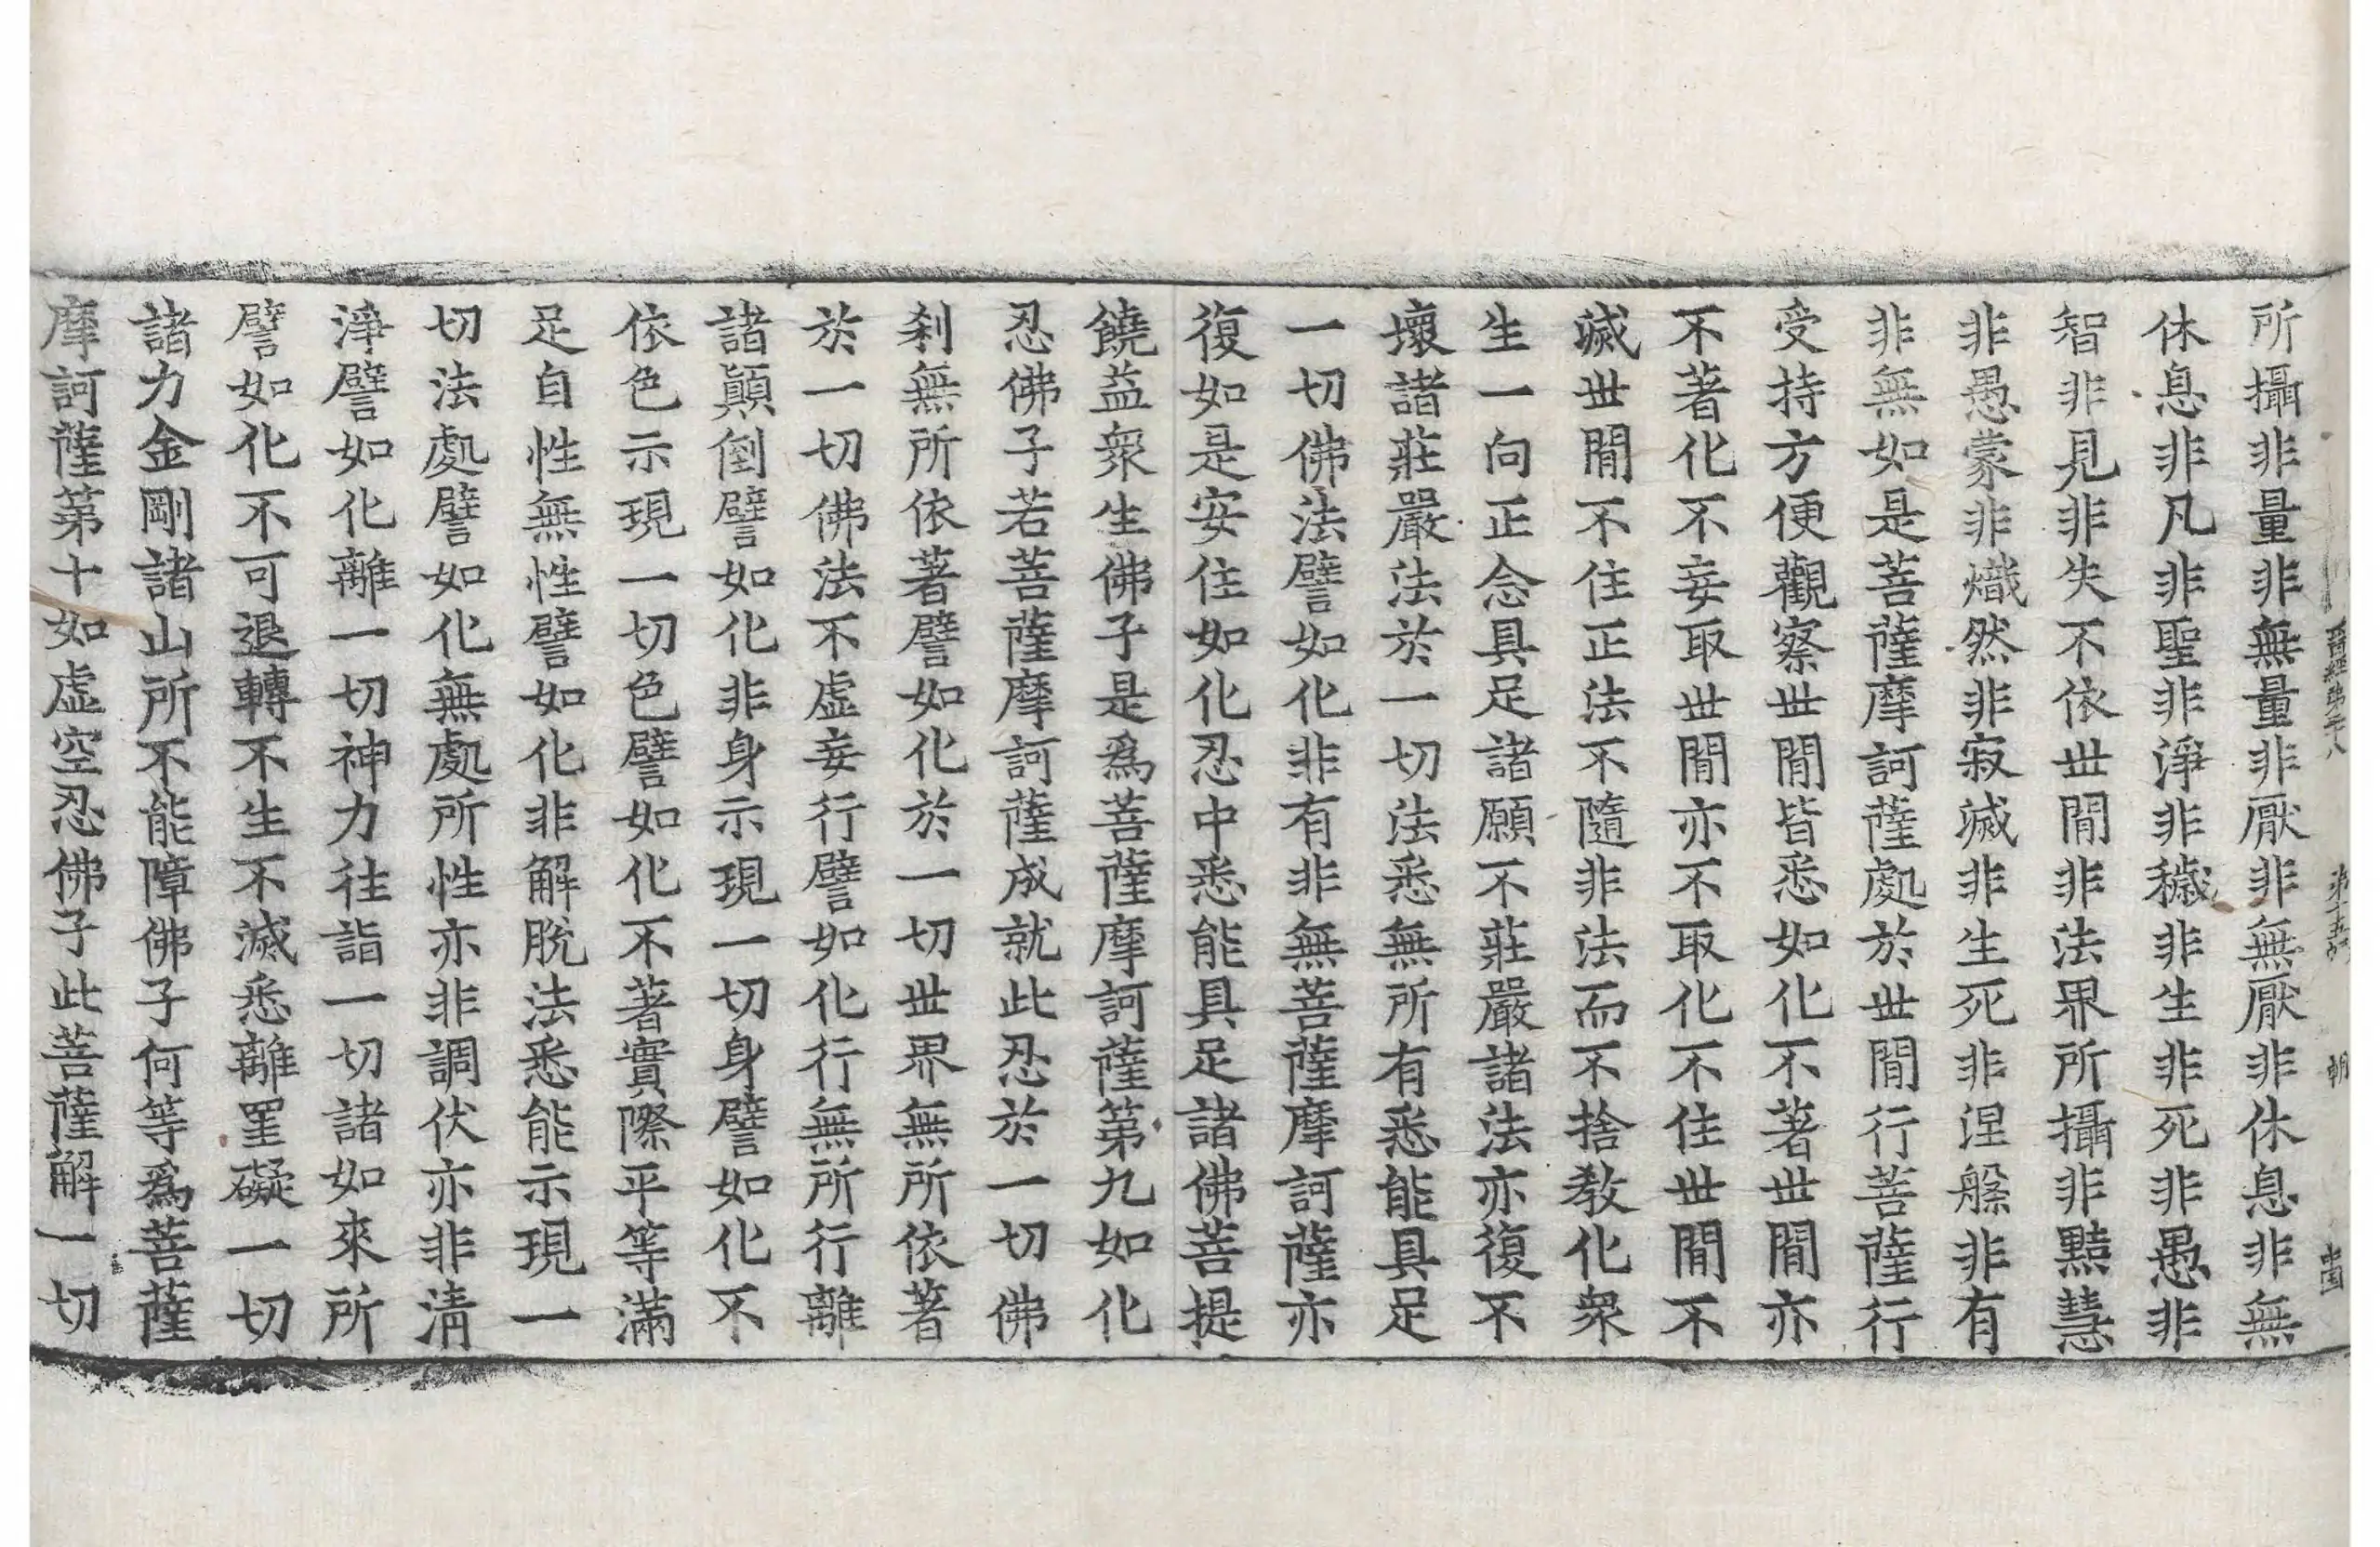 晉經第二十八 第十五丈 朝
所攝非量非無量非厭非無厭非休息非無
休息非凡非聖非淨非穢非生非死非愚非
智非見非失不依世間非法界所攝非黠慧
非愚蒙非熾然非寂滅非生死非涅槃非有
非無如是菩薩摩訶薩處於世間行菩薩行
受持方便觀察世間皆悉如化不著世間亦
不著化不妄取世間亦不取化不住世間不
滅世間不住正法不隨非法而不捨教化衆
生一向正念具足諸願不莊嚴諸法亦復不
壞諸莊嚴法於一切法悉無所有悉能具足
一切佛法譬如化非有非無菩薩摩訶薩亦
復如是安住如化忍中悉能具足諸佛菩提
饒益衆生佛子是爲菩薩摩訶薩第九如化
忍佛子若菩薩摩訶薩成就此忍於一切佛
刹無所依著譬如化於一切世界無所依著
於一切佛法不虛妄行譬如化行無所行離
諸顚倒譬如化非身示現一切身譬如化不
依色示現一切色譬如化不著實際平等滿
足自性無性譬如化非解脫法悉能示現一
切法處譬如化無處所性亦非調伏亦非淸
淨譬如化離一切神力往詣一切諸如來所
譬如化不可退轉不生不滅悉離罣礙一切
諸力金剛諸山所不能障佛子何等爲菩薩
摩訶薩第十如虛空忍佛子此菩薩解一切